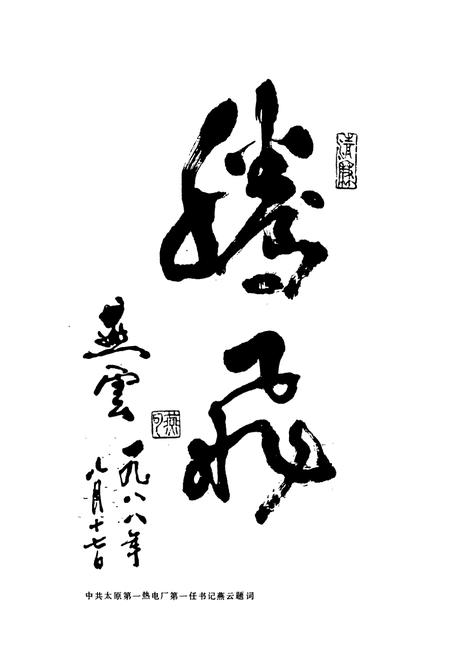 腾飞
燕雲
一九八八年
八月十七日
中共太原第一热电厂第一任书记燕云题词